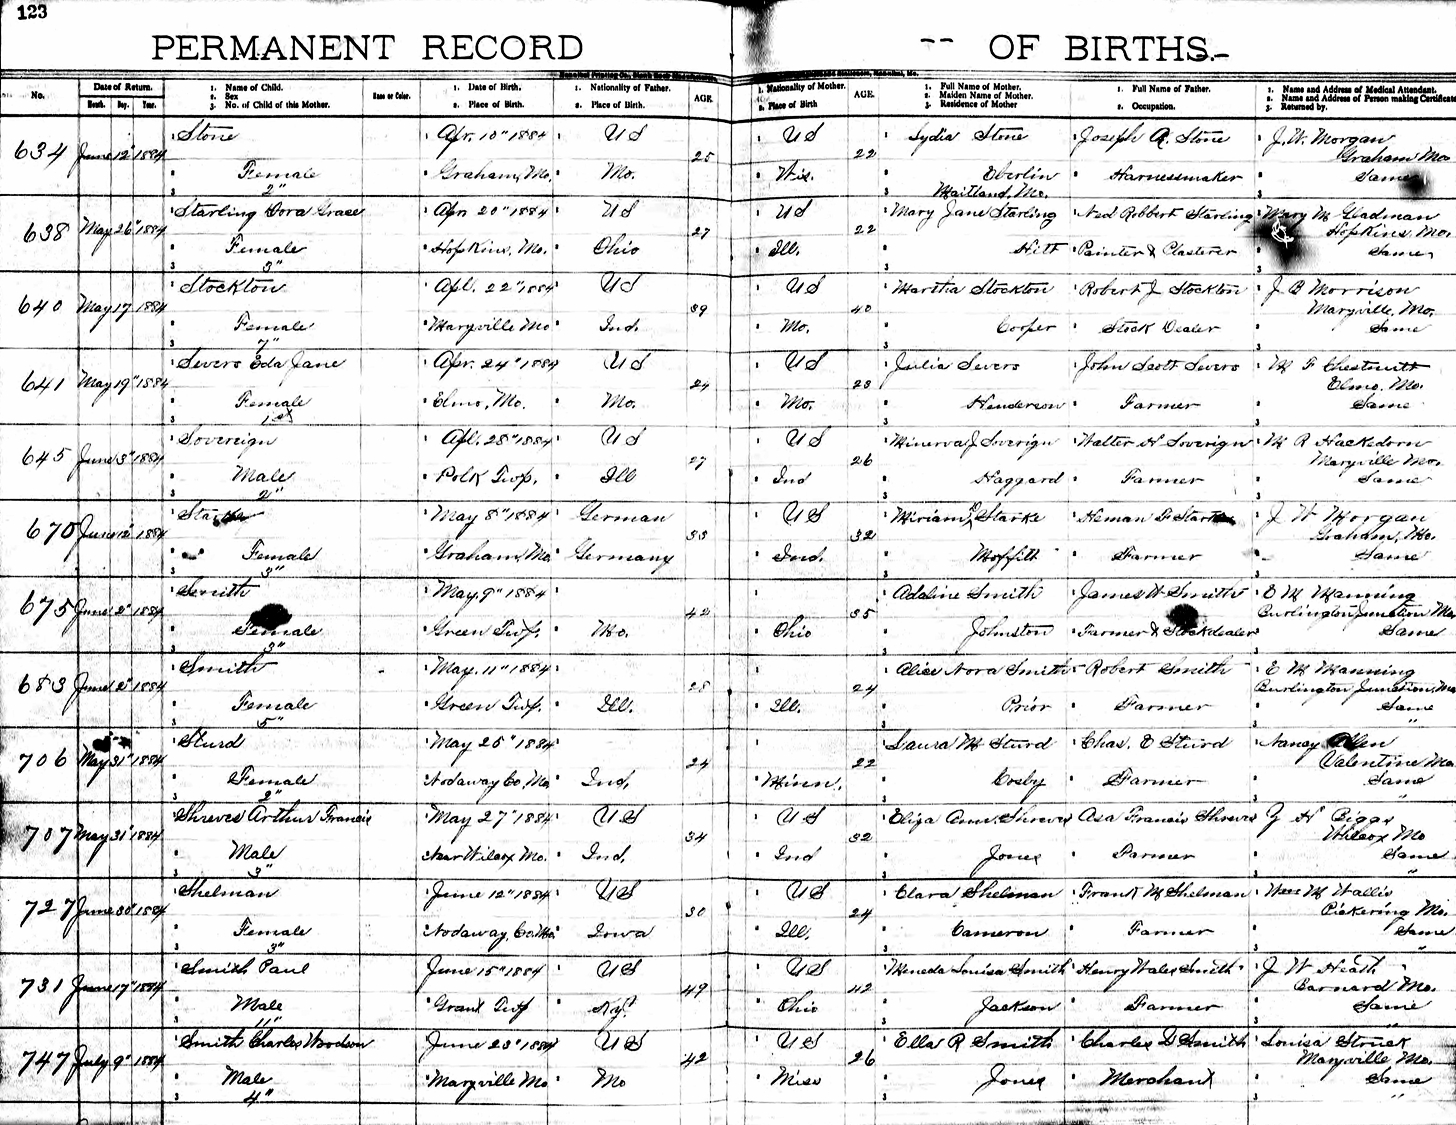 123
PERMANENT RECORD -- OF BIRTHS.
No.
Date of Return.
Month. Day. Year.
1. Name of Child.
2. Sex
3. No. of Child of this Mother.
Race or Color.
1. Date of Birth.
2. Place of Birth.
1. Nationality of Father.
2. Place of Birth.
AGE.
1. Nationality of Mother.
2. Place of Birth
AGE.
1. Full Name of Mother.
2. Maiden Name of Mother.
3. Residence of Mother
1. Full Name of Father.
2. Occupation.
1. Name and Address of Medical Attendant.
2. Name and Address of Person making Certificate
3. Returned by.
634 June 12" 1884 Stone Apr. 10" 1884 US 25 US 22 Lydia Stone Joseph A. Stone J. W. Morgan
Graham Mo
Female Graham, Mo. Mo. Wis. Oberlin Harnessmaker Same
2" Maitland, Mo.
638 May 26" 1884 Starling Dora Grace Apr 20" 1884 US 27 US 22 Mary Jane Starling Ned Robbert Starling Mary M Gladman
Hopkins, Mo.
Female Hopkins, Mo. Ohio Ill. Hitt Painter & Plasterer Same
3"
640 May 17 1884 Stockton Apl. 22" 1884 US 39 US 40 Martha Stockton Robert J Stockton J B Morrison
Maryville, Mo.
Female Maryville Mo Ind. Mo. Cooper Stock Dealer Same
7"
641 May 19" 1884 Severs Eda Jane Apr. 24" 1884 US 24 US 23 Julia Severs John Scott Severs M F Chestnutt
Elmo, Mo.
Female Elmo, Mo. Mo. Mo. Henderson Farmer Same
1st
645 June 3" 1884 Sovereign Apl. 28" 1884 US 27 US 26 Minerva J Soverign Walter H Soverign M R Hackedorn
Maryville Mo.
Male Polk Twp. Ill Ind Haggard Farmer Same
2"
670 June 12" 1884 May 8" 1884 German 33 US 32 Miriam Starke Heman J W Morgan
Graham, Mo.
Female Graham, Mo. Germany Ind. Moffitt Farmer Same
3"
675 June 2" 1884 Smith May 9" 1884 42 35 Adaline Smith James W Smith E M Manning
Burlington Junction Mo
Female Green Twp. Mo. Ohio Johnston Farmer & Stockdealer Same
3"
683 June 2" 1884 Smith May. 11" 1884 28 24 Alice Nora Smith Robert Smith E M Manning
Burlington Junction, Mo
Female Green Twp. Ill. Ill. Prior Farmer Same
5" "
706 May 31" 1884 Sturd May 25" 1884 24 22 Laura M Sturd Chas. E Sturd Nancy
Valentine Mo
Female Nodaway Co, Mo. Ind. Minn. Cosby Farmer Same
2" "
707 May 31" 1884 Shreves Arthur Francis May 27" 1884 US 34 US 32 Eliza Ann Shreves Asa Francis Shreves H Biggs
Wilcox Mo
Male Near Wilcox Mo. Ind. Ind Jones Farmer Same
3" "
727 June 30" 1884 Shelman June 12" 1884 US 30 US 24 Clara Shelman Frank M Shelman Wm M Wallis
Pickering Mo.
Female Nodaway, Co. Mo. Iowa Ill. Cameron Farmer Same
3" "
731 June 17" 1884 Smith Paul June 15" 1884 US 49 US 42 Louisa Smith Henry Wales Smith J W Heath
Barnard Mo.
Male Grant Twp Ky. Ohio Jackson Farmer Same
11" "
747 July 9" 1884 Smith Charles Woodson June 23" 1884 US 42 US 26 Ella R Smith Charles D Smith Louisa
Maryville Mo.
Male Maryville Mo Mo Miss Jones Merchant Same
4" "